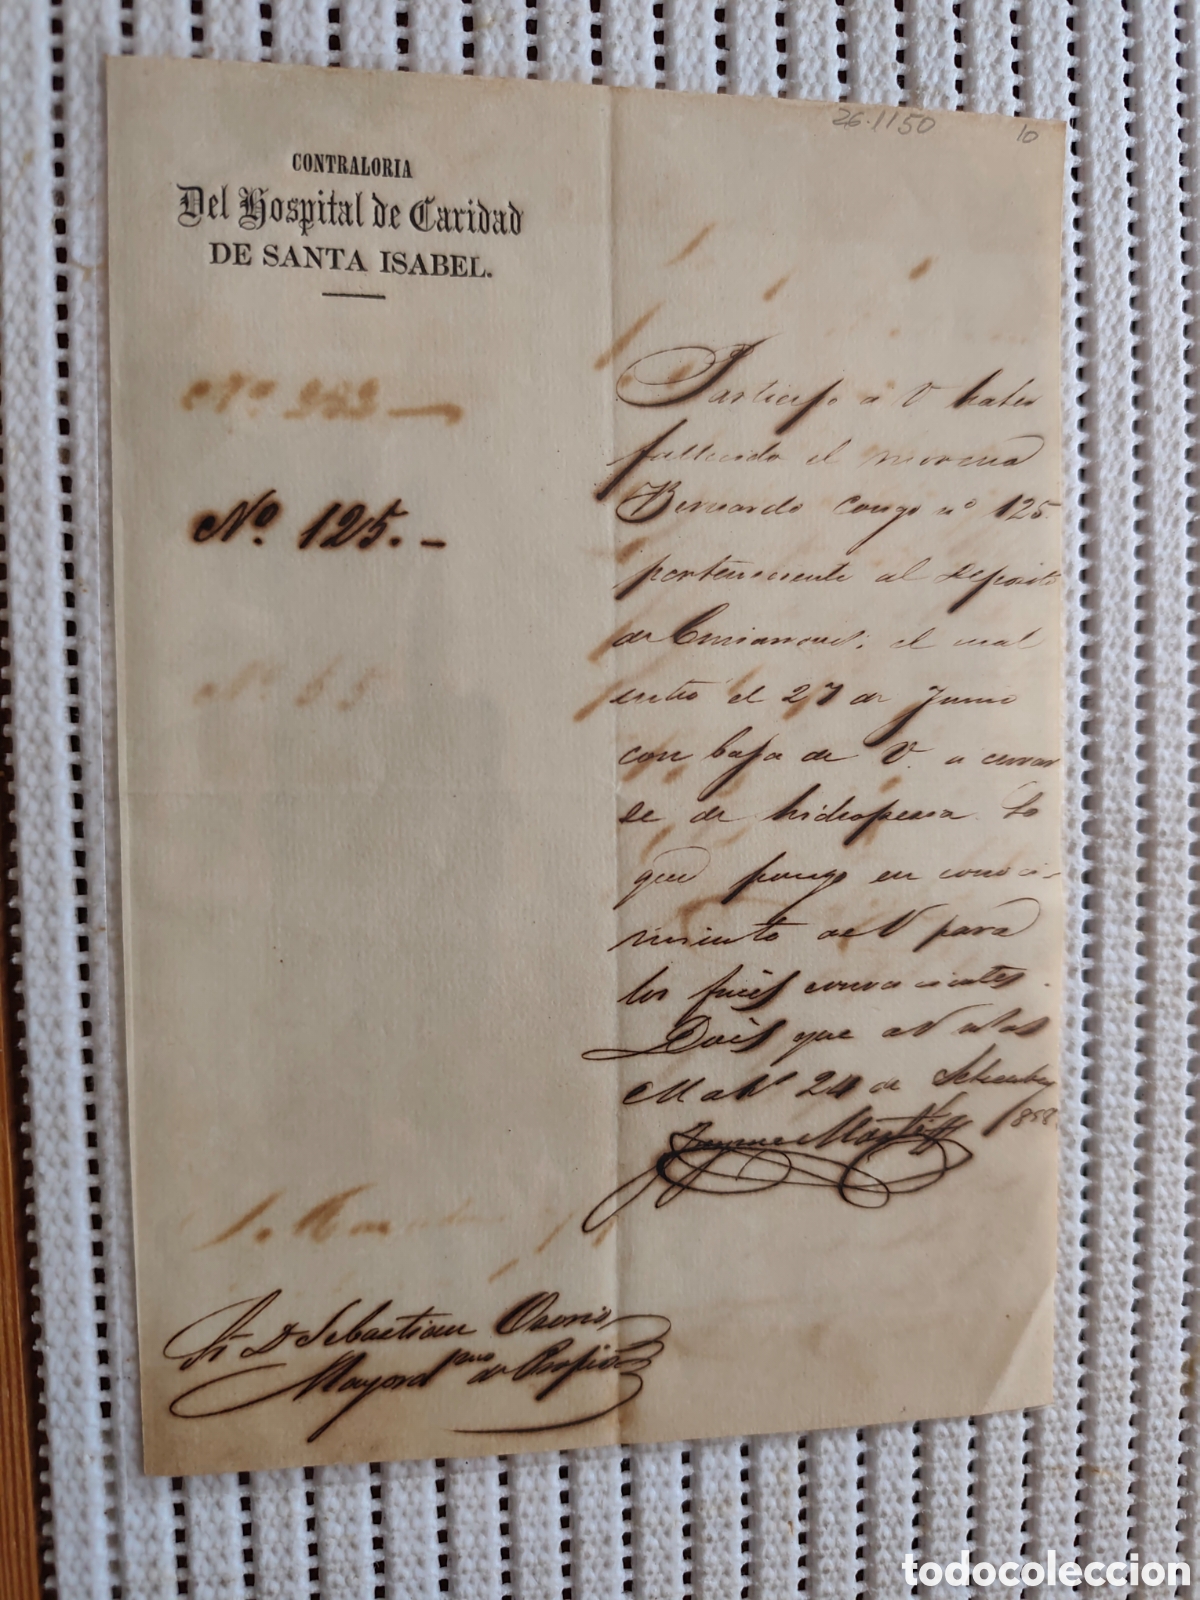 26.1150
10
CONTRALORIA
Del Hospital de Caridad
DE SANTA ISABEL.
Nº 125.-
Participo a V haber
fallecido el moreno
Bernardo Congo nº 125
perteneciente al Deposito
de Cimarrones. el cual
entró el 27 de Junio
con baja de V. a curar
se de hidropesia Lo
que pongo en conoci-
miento de V para
los fines convenientes.
Dios que a V m.s a.s
Mat.s 24 de Setiembre
1858.
Jayme Martí
Sr D Sebastian Osorio
Mayord.mo de Propios
todocoleccion